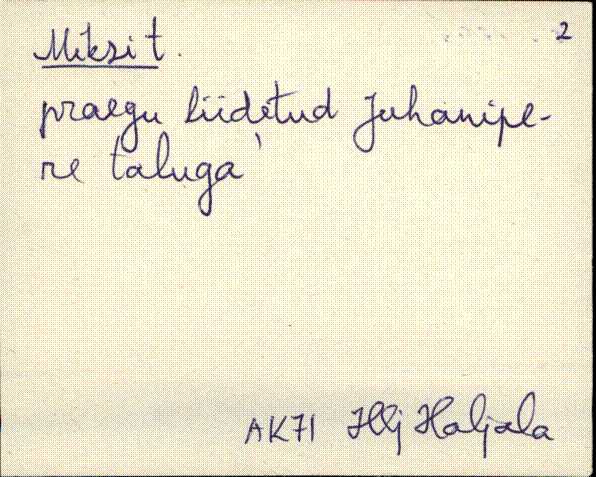 2
Miksi t.
praegu liidetud Juhanipe-
re taluga
AK71 Hlj Haljala